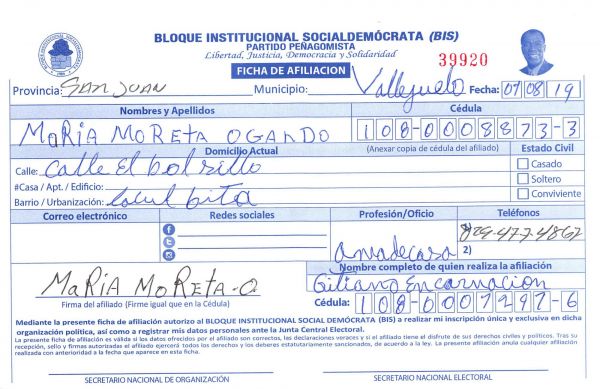 BLOQUE INSTITUCIONAL SOCIALDEMÓCRATA (BIS)
PARTIDO PEÑAGOMISTA
Libertad, Justicia, Democracia y Solidaridad
39920
FICHA DE AFILIACION
Provincia: SAN JUAN Municipio: Vallejuelo Fecha: 07/08/19
Nombres y Apellidos Cédula
MARIA MORETA OGANDO 108-0008873-3
Domicilio Actual (Anexar copia de cédula del afiliado) Estado Civil
Calle: Calle El bolsillo Casado
#Casa / Apt. / Edificio: Soltero
Barrio / Urbanización: Conviviente
Correo electrónico Redes sociales Profesión/Oficio Teléfonos
829-477-4862
2)
amadecasa
Nombre completo de quien realiza la afiliación
MARIA MORETA-O Giliano Encarnacion
Firma del afiliado (Firme igual que en la Cédula) Cédula: 108-0007297-6
Mediante la presente ficha de afiliación autorizo al BLOQUE INSTITUCIONAL SOCIAL DEMÓCRATA (BIS) a realizar mi inscripción única y exclusiva en dicha
organización política, así como a registrar mis datos personales ante la Junta Central Electoral.
La presente ficha de afiliación es válida si los datos ofrecidos por el afiliado son correctos, las declaraciones veraces y si el afiliado tiene el disfrute de sus derechos civiles y políticos. Tras su
recepción, sello y firmas autorizadas el afiliado ejercerá todos los derechos y los deberes estatutariamente sancionados, de acuerdo a la ley. La presente afiliación anula cualquier afiliación
realizada con anterioridad a la fecha que aparece en esta ficha.
SECRETARIO NACIONAL DE ORGANIZACIÓN SECRETARIO NACIONAL ELECTORAL